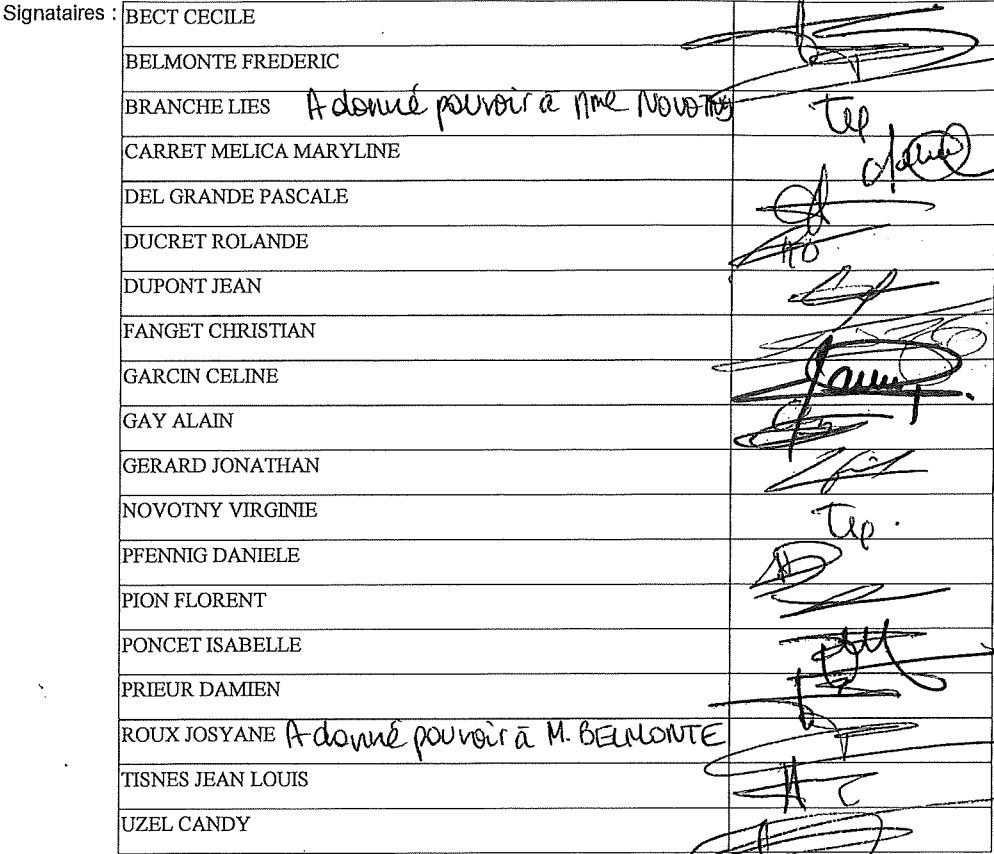 Signataires :
BECT CECILE
BELMONTE FREDERIC
BRANCHE LIES A donné pouvoir à Mme NOVOTNY
CARRET MELICA MARYLINE
DEL GRANDE PASCALE
DUCRET ROLANDE
DUPONT JEAN
FANGET CHRISTIAN
GARCIN CELINE
GAY ALAIN
GERARD JONATHAN
NOVOTNY VIRGINIE
PFENNIG DANIELE
PION FLORENT
PONCET ISABELLE
PRIEUR DAMIEN
ROUX JOSYANE A donné pouvoir à M. BELMONTE
TISNES JEAN LOUIS
UZEL CANDY